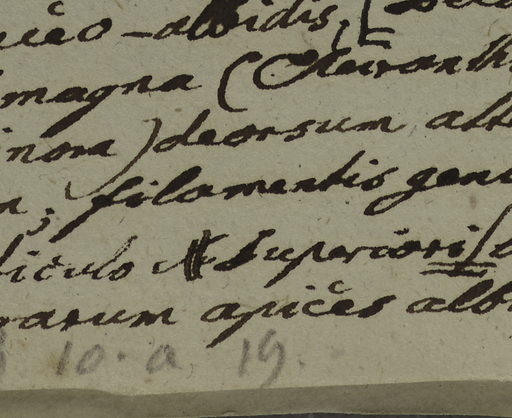 albidis;
magna (Cheiranth
inora) deorsum alt
n; filamentis geni
diculo superiori [
rarum apices alb
10. a 19.